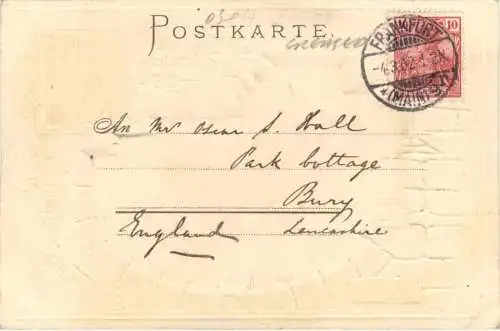 POSTKARTE.
10
FRANKFURT
(MAIN)
An Mr Oscar S. Hall
Park Cottage
Bury
England Lancashire